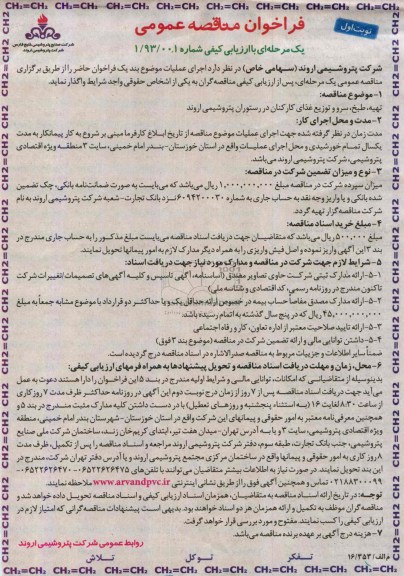 نوبت اول
فراخوان مناقصه عمومی
یک مرحله‌ای با ارزیابی کیفی شماره ۱/۹۳/۰۰۱
شرکت صنایع پتروشیمی خلیج فارس
شرکت پتروشیمی اروند
شرکت پتروشیمی اروند (سهامی خاص) در نظر دارد اجرای عملیات موضوع بند یک فراخوان حاضر را از طریق برگزاری
مناقصه عمومی یک مرحله‌ای، پس از ارزیابی کیفی مناقصه‌گران به یکی از اشخاص حقوقی واجد شرایط واگذار نماید.
۱-موضوع مناقصه:
تهیه، طبخ، سرو و توزیع غذای کارکنان در رستوران پتروشیمی اروند
۲-مدت و محل اجرای کار:
مدت زمان در نظر گرفته شده جهت اجرای عملیات موضوع مناقصه از تاریخ ابلاغ کارفرما مبنی بر شروع به کار پیمانکار به مدت
یکسال تمام خورشیدی و محل اجرای عملیات واقع در استان خوزستان-بندر امام خمینی، سایت ۳ منطقه ویژه اقتصادی
پتروشیمی، شرکت پتروشیمی اروند می‌باشد.
۳-نوع و میزان تضمین شرکت در مناقصه:
میزان سپرده شرکت در مناقصه مبلغ ۱,۰۰۰,۰۰۰,۰۰۰ ریال می‌باشد که می‌بایست به صورت ضمانتنامه بانکی، چک تضمین
شده بانکی و یا واریز وجه نقد به حساب جاری به شماره ۶۰۹۴۲۰۰۳۰ نزد بانک تجارت-شعبه شرکت پتروشیمی اروند به نام
شرکت مناقصه‌گزار تهیه گردد.
۴-مبلغ خرید اسناد مناقصه:
مبلغ ۵۰۰,۰۰۰ ریال می‌باشد که متقاضیان جهت دریافت اسناد مناقصه می‌بایست مبلغ مذکور را به حساب جاری مندرج در
بند ۳ این آگهی واریز نموده و اصل فیش واریزی را به همراه دیگر مدارک لازم به امور پیمانها تحویل نمایند.
۵-شرایط لازم جهت شرکت در مناقصه و مدارک مورد نیاز جهت دریافت اسناد:
۵-۱-ارائه مدارک ثبتی شرکت حاوی تصاویر مصدق (اساسنامه، آگهی تاسیس و کلیه آگهی‌های تصمیمات/تغییرات شرکت
تاکنون مندرج در روزنامه رسمی، کد اقتصادی و شناسه ملی)
۵-۲-ارائه مدارک مصدق مفاصاً حساب بیمه در خصوص ارائه حداقل یک و یا حداکثر دو قرارداد با موضوع مشابه جمعاً به مبلغ
۴۵,۰۰۰,۰۰۰,۰۰۰ ریال که در پنج سال گذشته به اتمام رسیده باشد.
۵-۳-ارائه تایید صلاحیت معتبر از اداره تعاون، کار و رفاه اجتماعی
۵-۴-داشتن توانایی مالی و ارائه تضمین شرکت در مناقصه (موضوع بند ۳ فوق)
ضمناً سایر اطلاعات و جزییات مربوط به مناقصه صدرالاشاره در اسناد مناقصه درج گردیده است.
۶-محل، زمان و مهلت دریافت اسناد مناقصه و تحویل پیشنهادها به همراه فرمهای ارزیابی کیفی:
بدینوسیله از متقاضیانی که امکانات، توانایی مالی و شرایط اولیه مندرج در بند ۵ این فراخوان را دارا هستند دعوت به عمل
می‌آید جهت دریافت اسناد مناقصه پس از ۷ روز از زمان درج نوبت دوم این آگهی در روزنامه حداکثر ظرف مدت ۷ روز کاری
از ساعت ۸:۳۰ لغایت ۱۶ (به استثناء پنجشنبه و روزهای تعطیل) با در دست داشتن کلیه مدارک مثبت مندرج در بند ۵ و
همچنین معرفی‌نامه معتبر به امور حقوقی و پیمانهای این شرکت واقع در استان خوزستان-شهرستان بندر امام خمینی، منطقه
ویژه اقتصادی پتروشیمی، سایت ۳ و یا به آدرس تهران-میدان هفت تیر، ابتدای کریم‌خان زند، ساختمان شرکت ملی صنایع
پتروشیمی، جنب بانک تجارت، طبقه سوم، دفتر شرکت پتروشیمی اروند مراجعه و اسناد مناقصه را پس از تکمیل، ظرف مدت
۸ روز کاری به امور حقوقی و پیمانها واقع در ساختمان مرکزی مجتمع پتروشیمی اروند و یا آدرس دفتر تهران شرکت، مندرج در
این بند تحویل نمایند. در صورت نیاز به اطلاعات بیشتر متقاضیان می‌توانند با تلفن‌های ۰۶۵۲۲۶۲۶۴۷۵-۰۶۵۲۲۶۲۶۴۷۰
۰۲۱۸۸۳۰۰۰۹۹ تماس و همچنین آگهی فوق را از طریق نشانی اینترنتی www.arvandpvc.ir ملاحظه نمایند.
توجه: در تاریخ ارائه اسناد مناقصه به متقاضیان، همزمان اسناد ارزیابی کیفی و اسناد مناقصه تحویل داده خواهد شد و
مناقصه‌گران موظف به تکمیل و ارائه همزمان هر دو اسناد خواهند بود. بدیهی است پیشنهادات مناقصه‌گرانی که امتیاز لازم در
ارزیابی کیفی را کسب نمایند، مفتوح و مورد بررسی قرار خواهد گرفت.
۷-هزینه درج آگهی بر عهده برنده مناقصه می‌باشد.
روابط عمومی شرکت پتروشیمی اروند
م الف/ ۱۶/۳۵۳
تفکر توکل تلاش